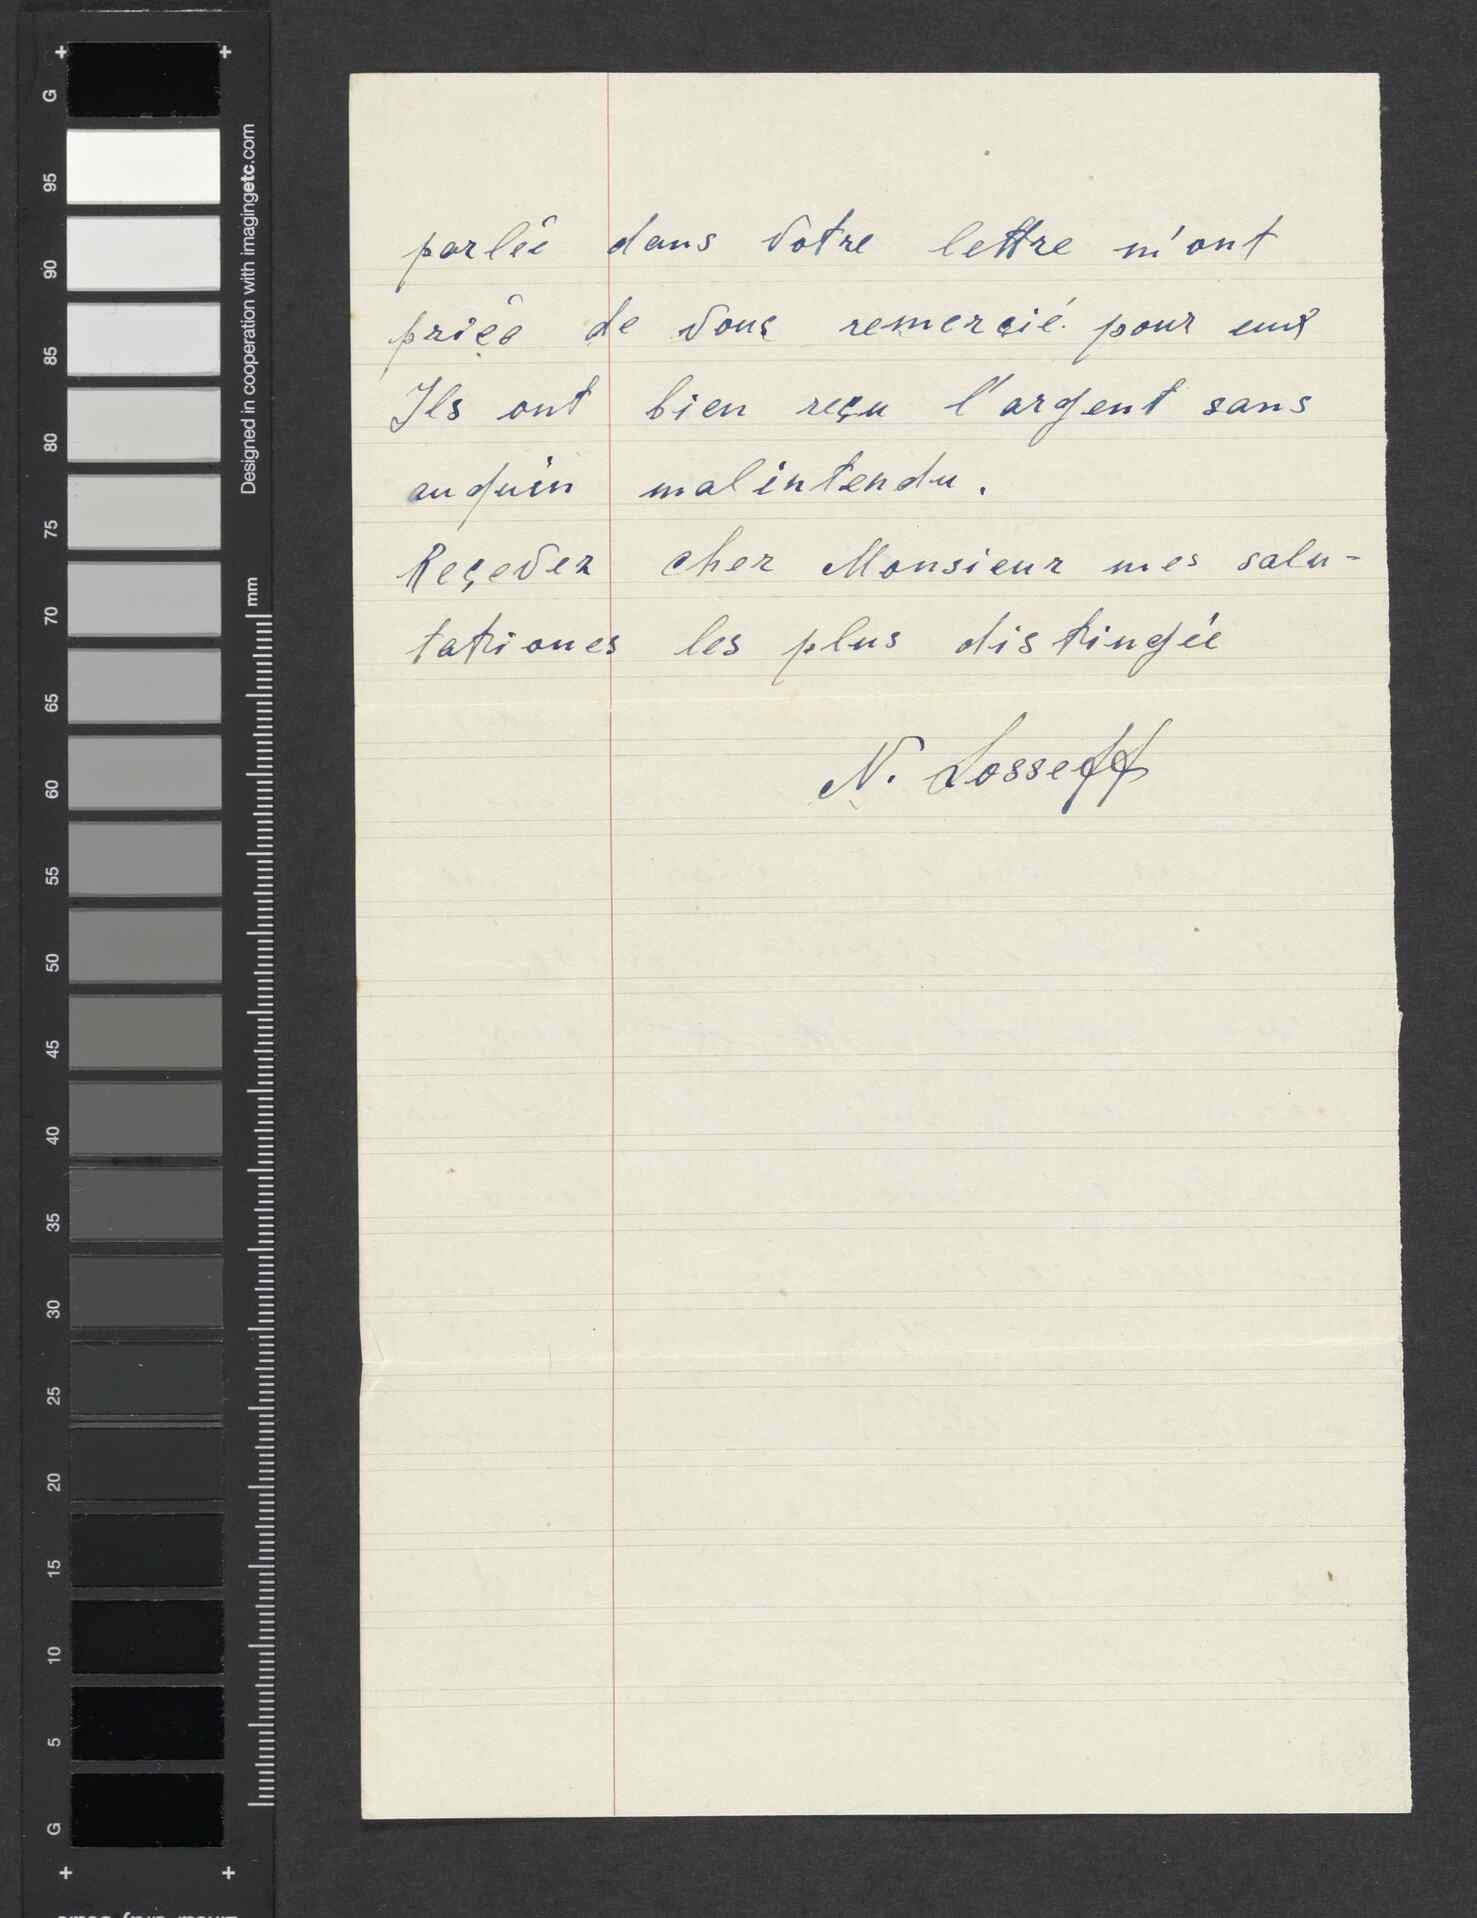 parlée dans votre lettre m'ont
priée de vous remercié pour eux
Ils ont bien reçu l'argent sans
auquin malintendu.
Reçevez cher Monsieur mes salu-
tationes les plus distingée
N. Losseff
G
95
90
85
80
75
70
65
60
55
50
45
40
35
30
25
20
15
10
5
G
Designed in cooperation with imagingetc.com
mm